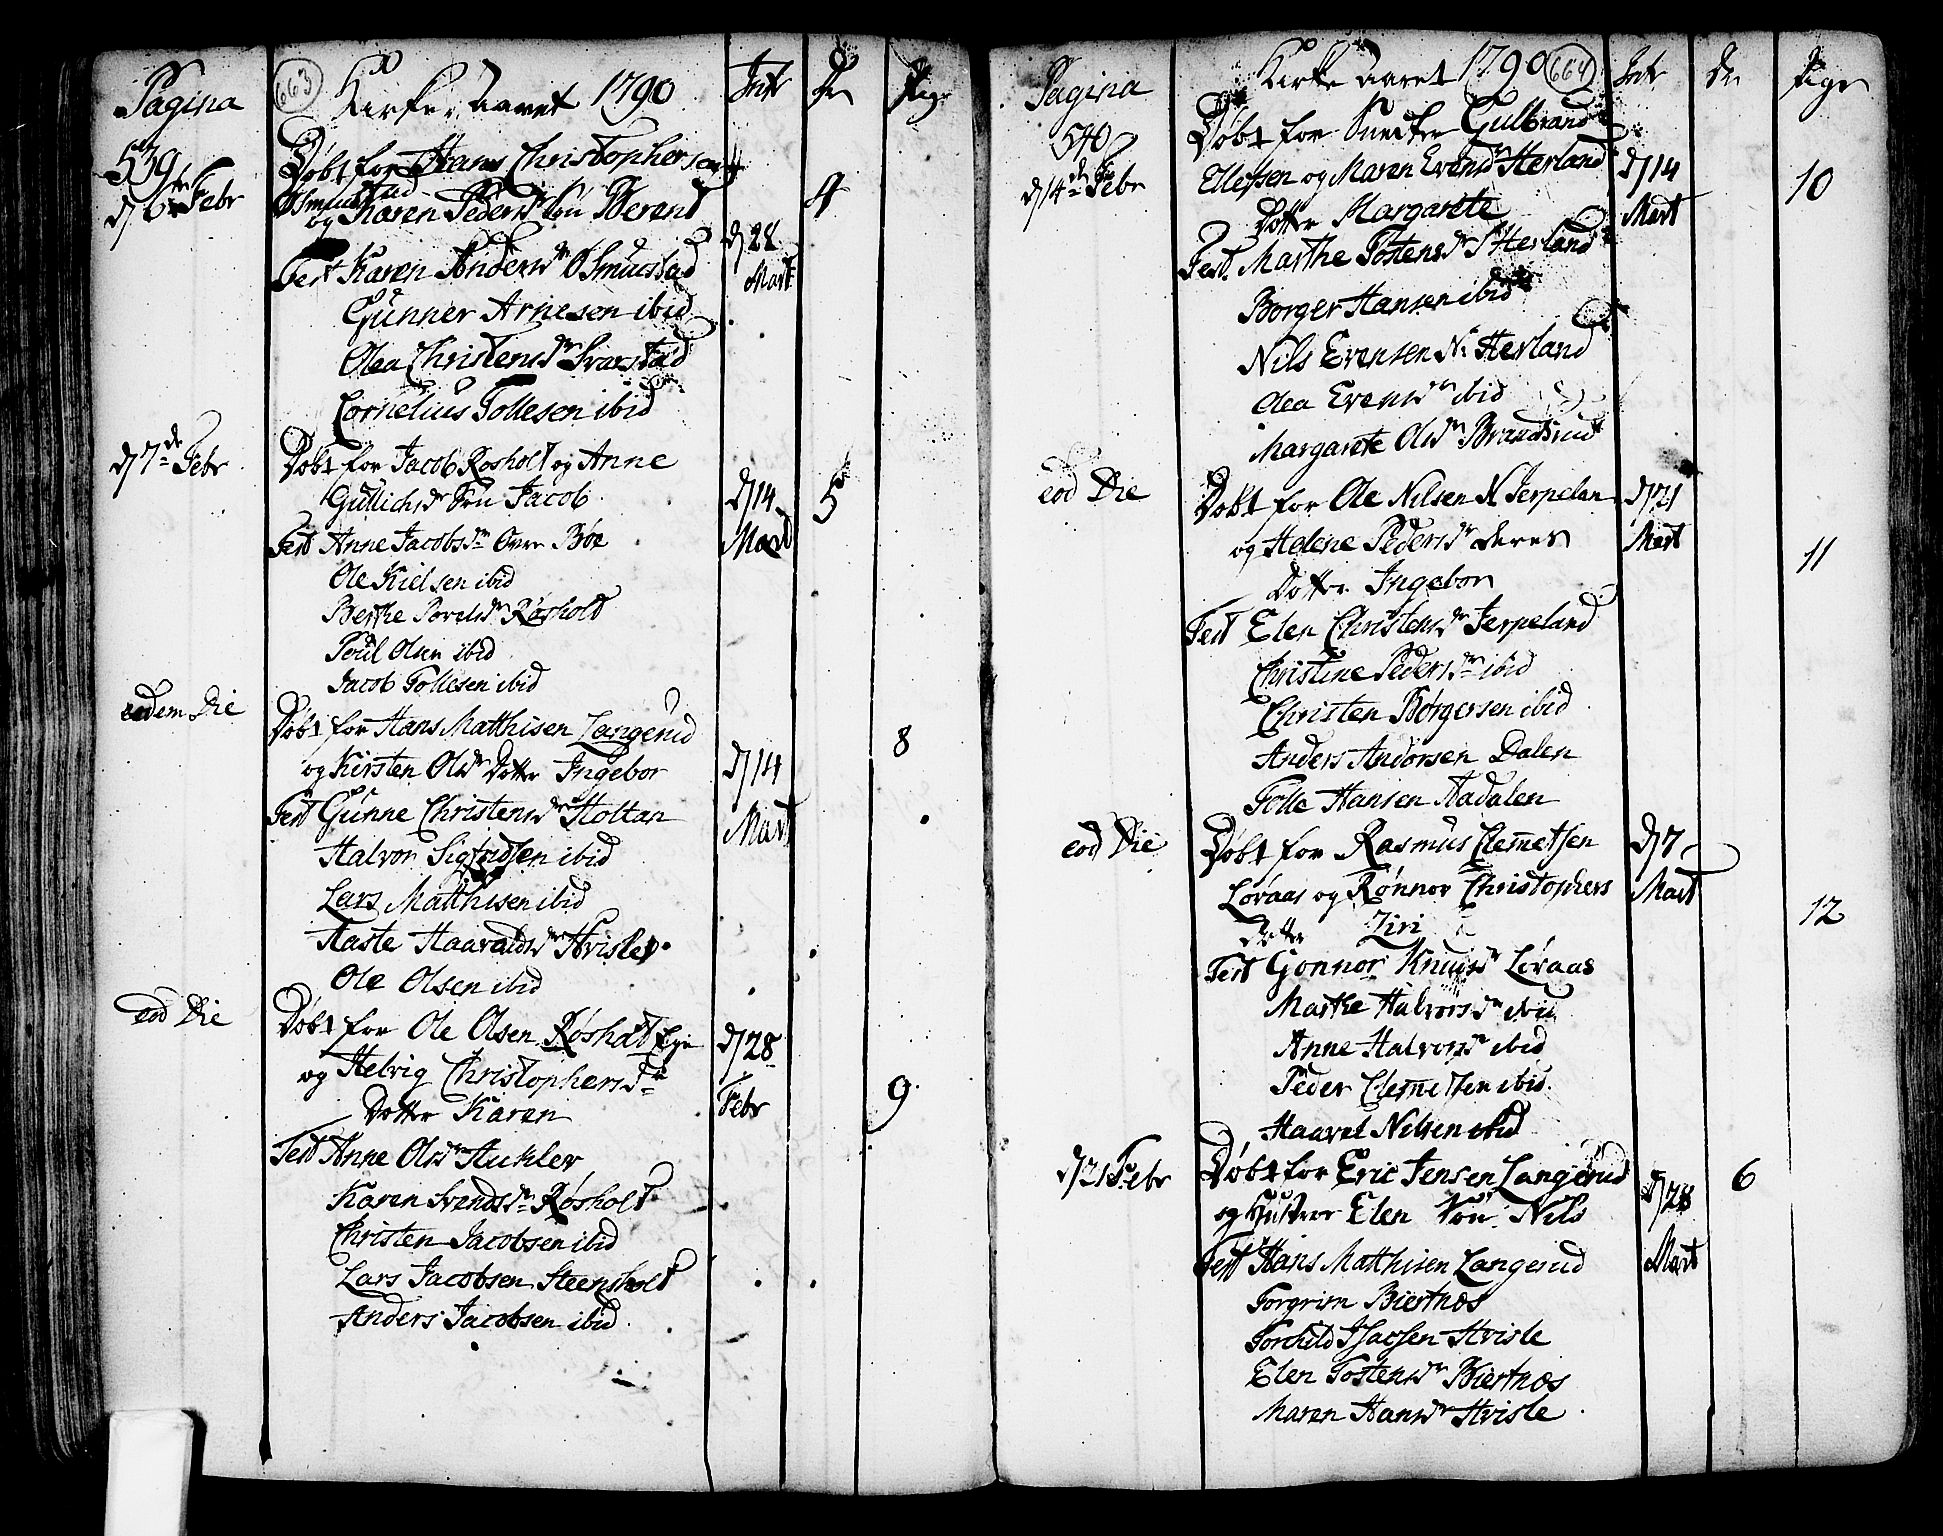 Pagina
663
Kirke Aaret 1790
Intr
Dr
Piger
539
d 6te Febr
Døbt for Hans Christophersen
Smuestad
og Karen Pedersdr Søn Berent
d 28
Mart
4
Test Karen Andersdr Smuestad
Gunner Arnesen ibid
Olea Christensdr Svarstad
Cornelius Tollesen ibid
d 7de Febr
Døbt for Jacob Rosholt og Anne
Gullichsdr Søn Jacob
d 14
Mart
5
Test Anne Jacobsdr Over Bøe
Ole Kielsen ibid
Berthe Povelsdr Røsholt
Poul Olsen ibid
Jacob Tollesen ibid
eodem Die
Døbt for Hans Matthisen Langerud
og Kirsten Olsdr Dotter Ingebor
d 14
Mart
8
Test Gunne Christensdr Holtan
Halvor Sigfridsen ibid
Lars Matthisen ibid
Aaste Haavaldsdr Hvisle
Ole Olsen ibid
eod Die
Døbt for Ole Olsen Røsholt Eje
og Helvig Christophersdr
Dotter Karen
d 28
Febr
9
Test Anne Olsdr Aukler
Karen Svendsdr Røsholt
Christen Jacobsen ibid
Lars Jacobsen Steensholt
Anders Jacobsen ibid
Pagina
Kirke Aaret 1790
664
Intr
Dr
Piger
540
d 14de Febr
Døbt for Snecker Gulbrand
Ellefsen og Maren Evensdr Herland
Dotter Margarete
d 14
Mart
10
Test. Marthe Tostensdr S Herland
Borger Hansen ibid
Nils Evensen N: Herland
Olea Evensdr ibid
Margarete Olsdr Brandsrud
eod Die
Døbt for Ole Nilsen N Jerpelan
og Helene Pedersdr deres
Dotter Ingebor
d 21
Mart
11
Test Elen Christensdr Jerpeland
Christine Pedersdr ibid
Christen Børgersen ibid
Anders Andersen Dalen
Tolle Hansen Aadalen
eod Die
Døbt for Rasmus Clemetsen
Løvaas og Rønnor Christophers
Dotter Ziri
d 7
Mart
12
Test Gonnor Knudsdr Løvaas
Marthe Halvorsdr ibid
Anne Halvorsdr ibid
Peder Clemetsen ibid
Haavel Nilsen ibid
d 21 Febr
Døbt for Eric Jensen Langerud
og Hustroe Elen Søn Nils
d 28
Mart
6
Test Hans Matthisen Langerud
Torgrim Biertnæs
Torchild Isacsen Hvisle
Elen Tostensdr Biertnæs
Maren Hansdr Hvisle